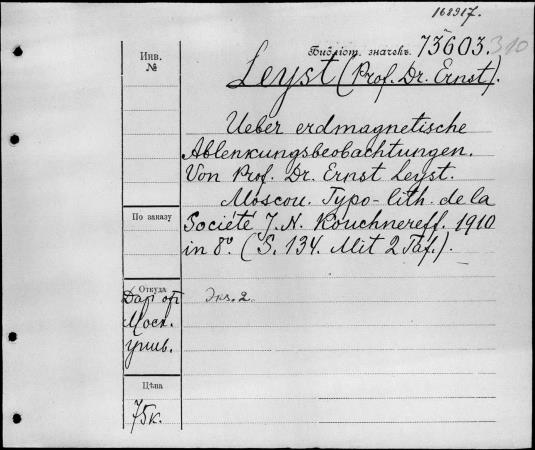 162917.
Библіот. значекъ. 73603. 310
Инв.
№
Leyst (Prof. Dr. Ernst).
Ueber erdmagnetische
Ablenkungsbeobachtungen.
Von Prof. Dr. Ernst Leyst.
Moscou. Typo-lith. de la
По заказу
Société J. N. Kouchnereff. 1910
in 8º. (S. 134. Mit 2 Taf.).
Откуда
Даръ отъ
Моск.
унив.
Экз. 2.
Цѣна
75к.